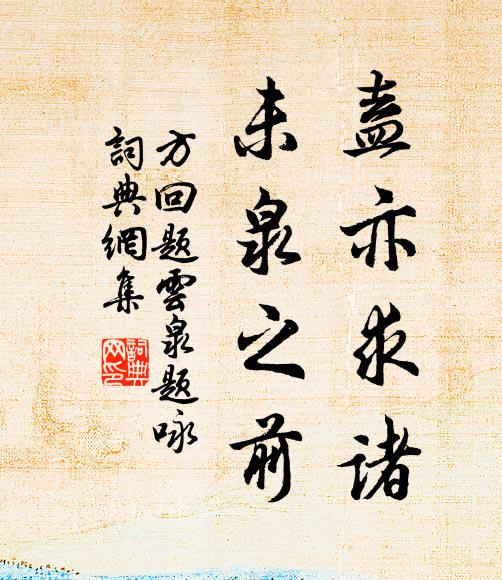 盍亦求诸
未泉之前
方回题雲泉题咏
詞典網集
詞典网印